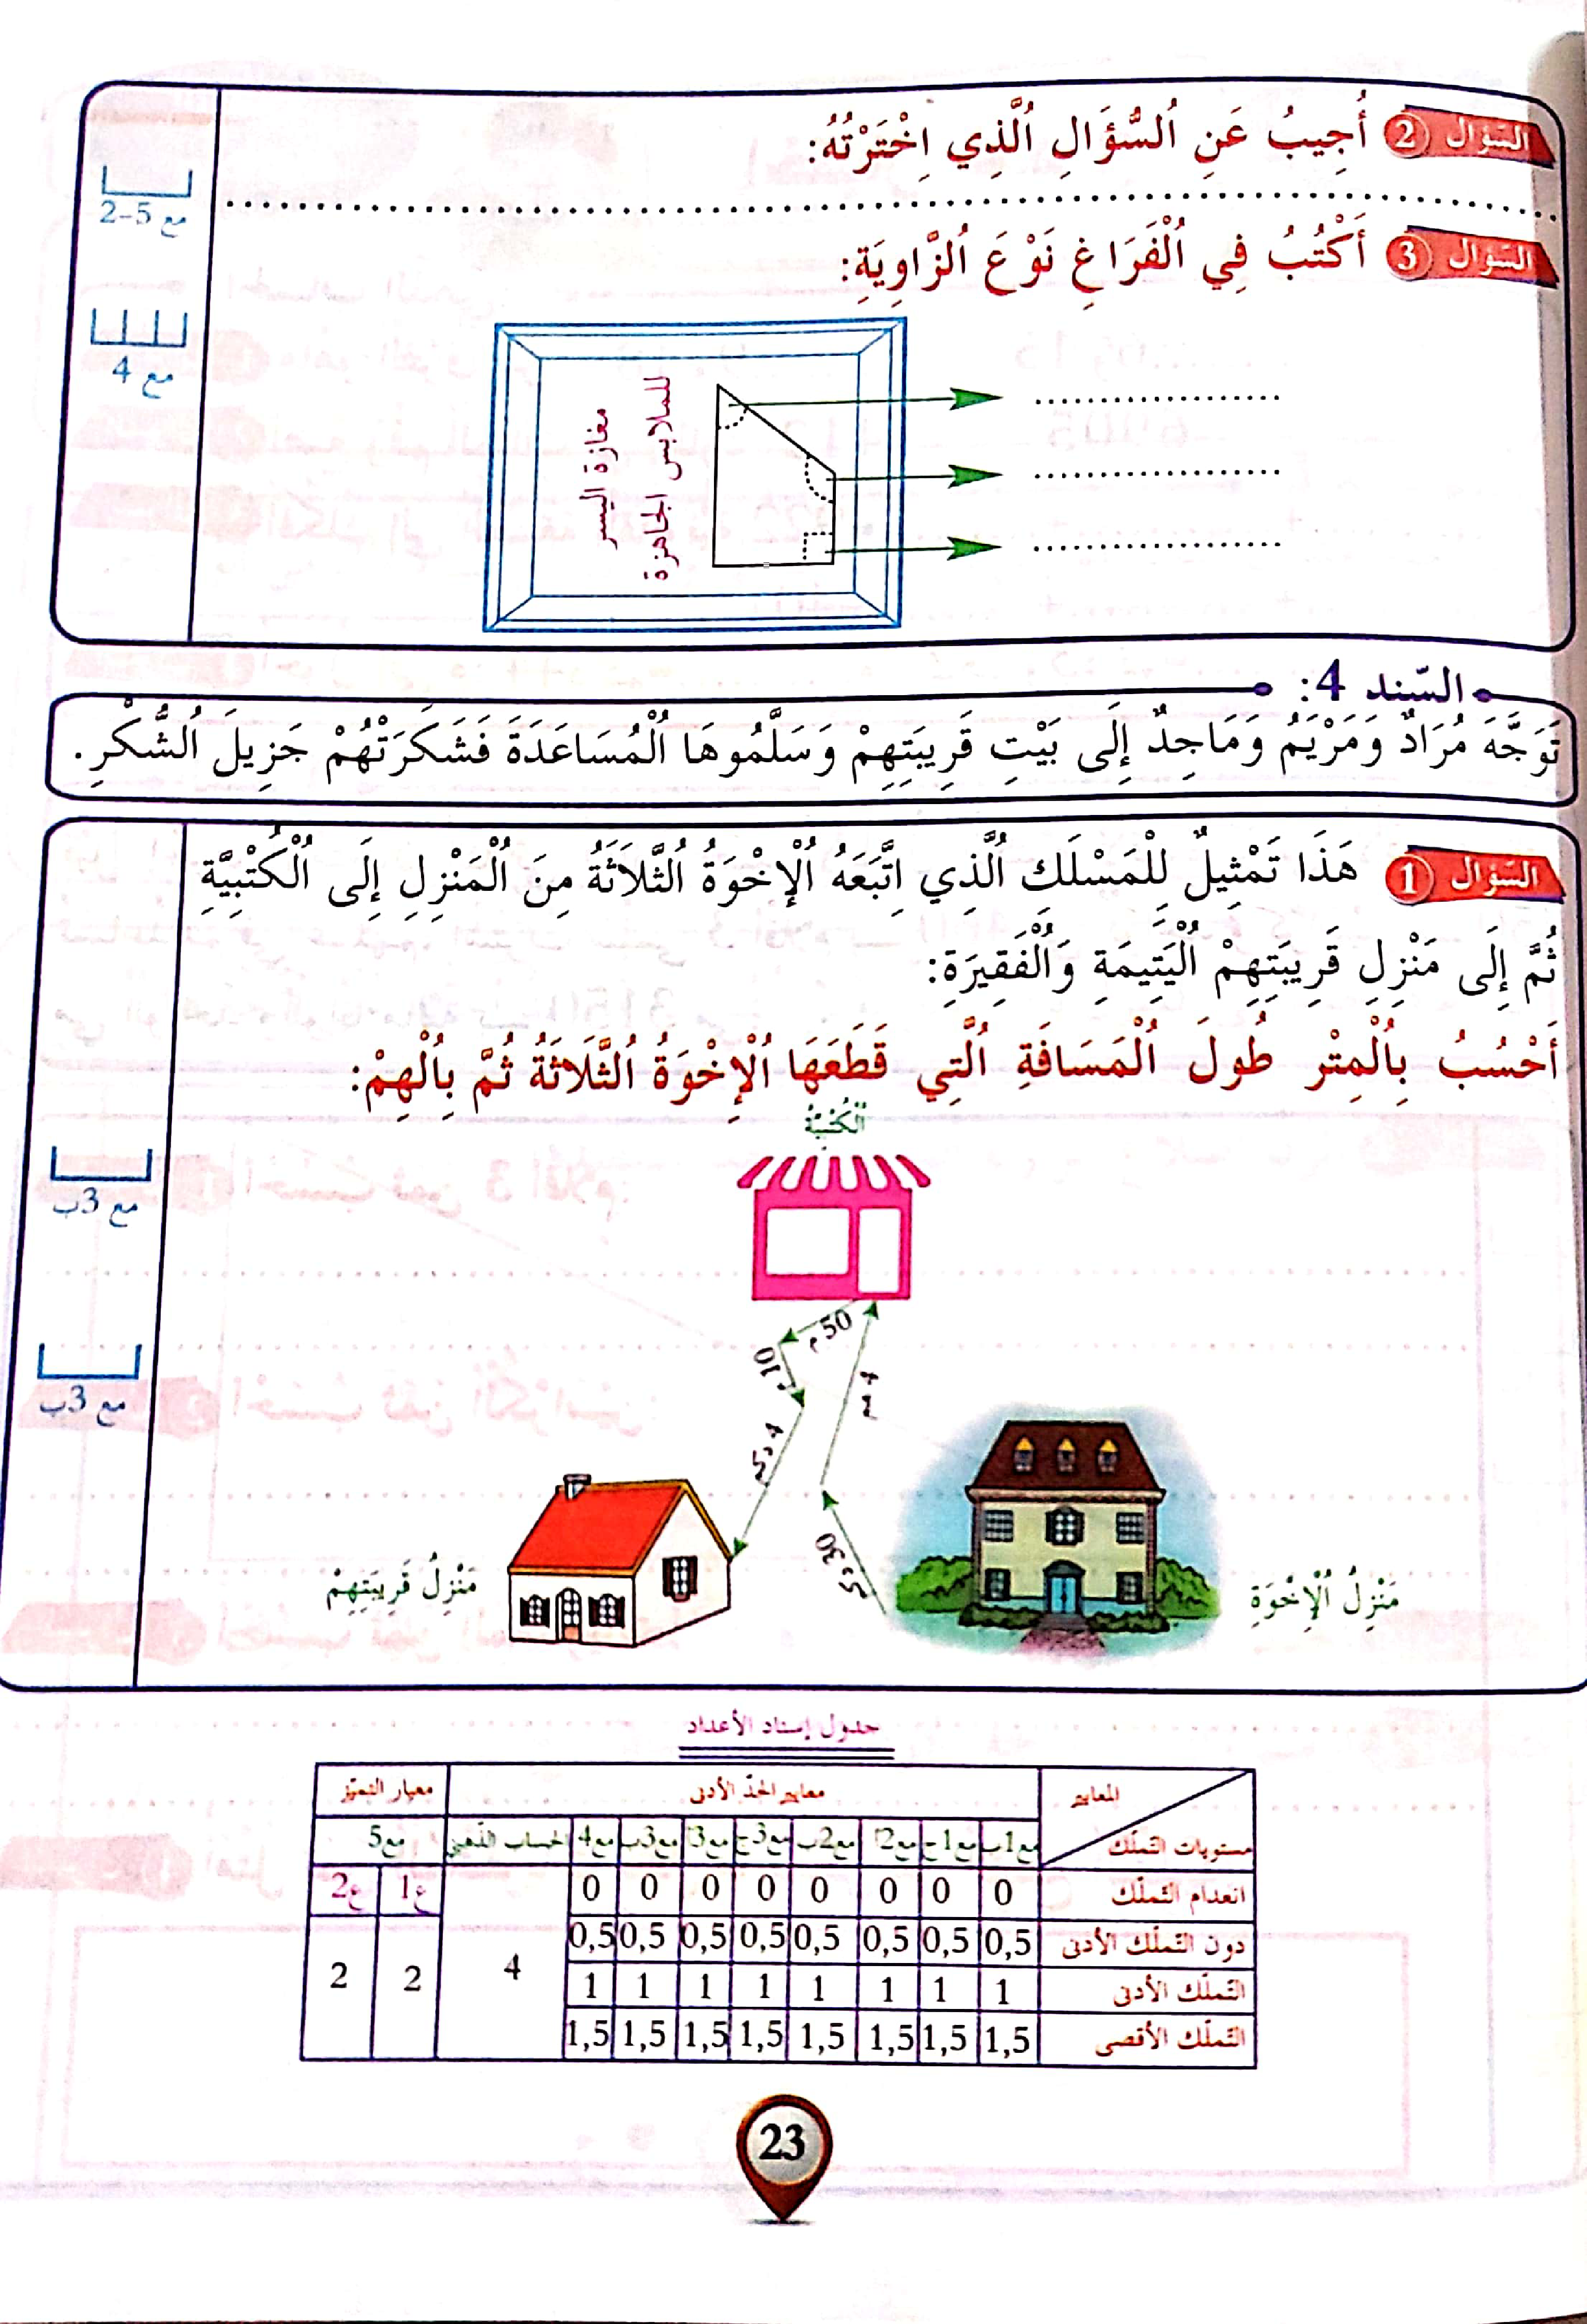 السّؤال 2 أُجِيبُ عَنِ ٱلسُّؤَالِ ٱلَّذِي اِخْتَرْتُهُ:
مع 5-2
السّؤال 3 أَكْتُبُ فِي ٱلْفَرَاغِ نَوْعَ ٱلزَّاوِيَةِ:
مع 4
مغازة اليسر
للملابس الجاهزة
السّند 4:
تَوَجَّهَ مُرَادٌ وَمَرْيَمُ وَمَاجِدٌ إِلَى بَيْتِ قَرِيبَتِهِمْ وَسَلَّمُوهَا ٱلْمُسَاعَدَةَ فَشَكَرَتْهُمْ جَزِيلَ ٱلشُّكْرِ.
السّؤال 1 هَذَا تَمْثِيلٌ لِلْمَسْلَكِ ٱلَّذِي اِتَّبَعَهُ ٱلْإِخْوَةُ ٱلثَّلَاثَةُ مِنَ ٱلْمَنْزِلِ إِلَى ٱلْكُتْبِيَّةِ
ثُمَّ إِلَى مَنْزِلِ قَرِيبَتِهِمْ ٱلْيَتِيمَةِ وَٱلْفَقِيرَةِ:
أَحْسُبُ بِٱلْمِتْر طُولَ ٱلْمَسَافَةِ ٱلَّتِي قَطَعَهَا ٱلْإِخْوَةُ ٱلثَّلَاثَةُ ثُمَّ بِٱلْهِمْ:
ٱلْكُتْبِيَّةُ
مع 3ب
50 م
10 م
4 هم
مع 3ب
4 دكم
30 دكم
مَنْزِلُ ٱلْإِخْوَةِ
مَنْزِلُ قَرِيبَتِهِمْ
جدول إسناد الأعداد
المعايير معايير الحدّ الأدنى معيار التميّز
مستويات التّملّك مع1ب مع1ج مع2أ مع2ب مع3ج مع3أ مع3ب مع4 الحساب الذّهني مع5
انعدام التّملّك 0 0 0 0 0 0 0 0 ع1 ع2
دون التّملّك الأدنى 0,5 0,5 0,5 0,5 0,5 0,5 0,5 0,5
4 2 2
التّملّك الأدنى 1 1 1 1 1 1 1 1
التّملّك الأقصى 1,5 1,5 1,5 1,5 1,5 1,5 1,5 1,5
23